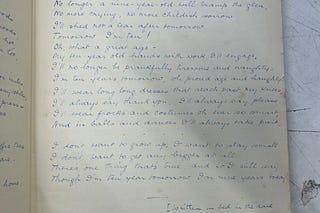 No longer a nine-year-old will tramp the glen,
No more crying, no more childish sorrow
I'll shed not a tear after tomorrow
Tomorrow I'm ten!
Oh, what a great age -
My ten year old hands with work I'll engage,
I'll no longer be prankfully, tiresome and naughty,
I'm ten years tomorrow, oh proud age and haughty!
I'll wear long long dresses that reach past my knees
I'll always say thank you. I'll always say please
I'll wear frocks and costumes oh ever so smart
And in balls and dances I'll always take part
I don't want to grow up, I want to stay small
I don't want to get any bigger at all
There's one thing that's true and it I will say,
Though I'm ten years tomorrow I'm nine years today
[Written in bed in the dark